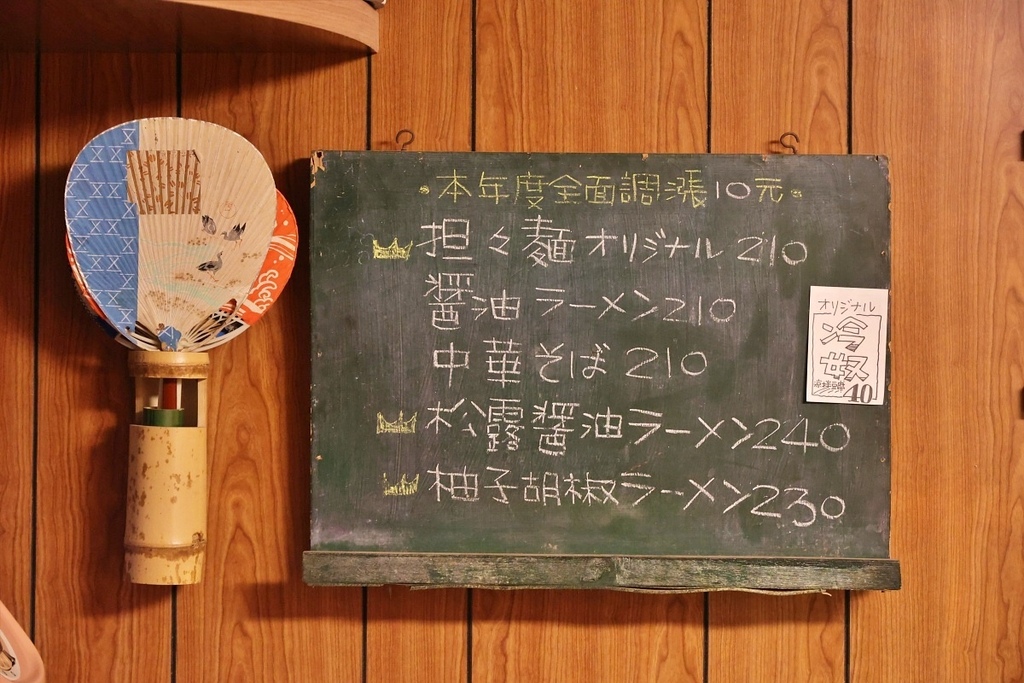 •本年度全面調漲10元•
担々麺オリジナル 210
醤油ラーメン210
中華そば 210
松露醤油ラーメン240
柚子胡椒ラーメン230
オリジナル
冷
奴
40